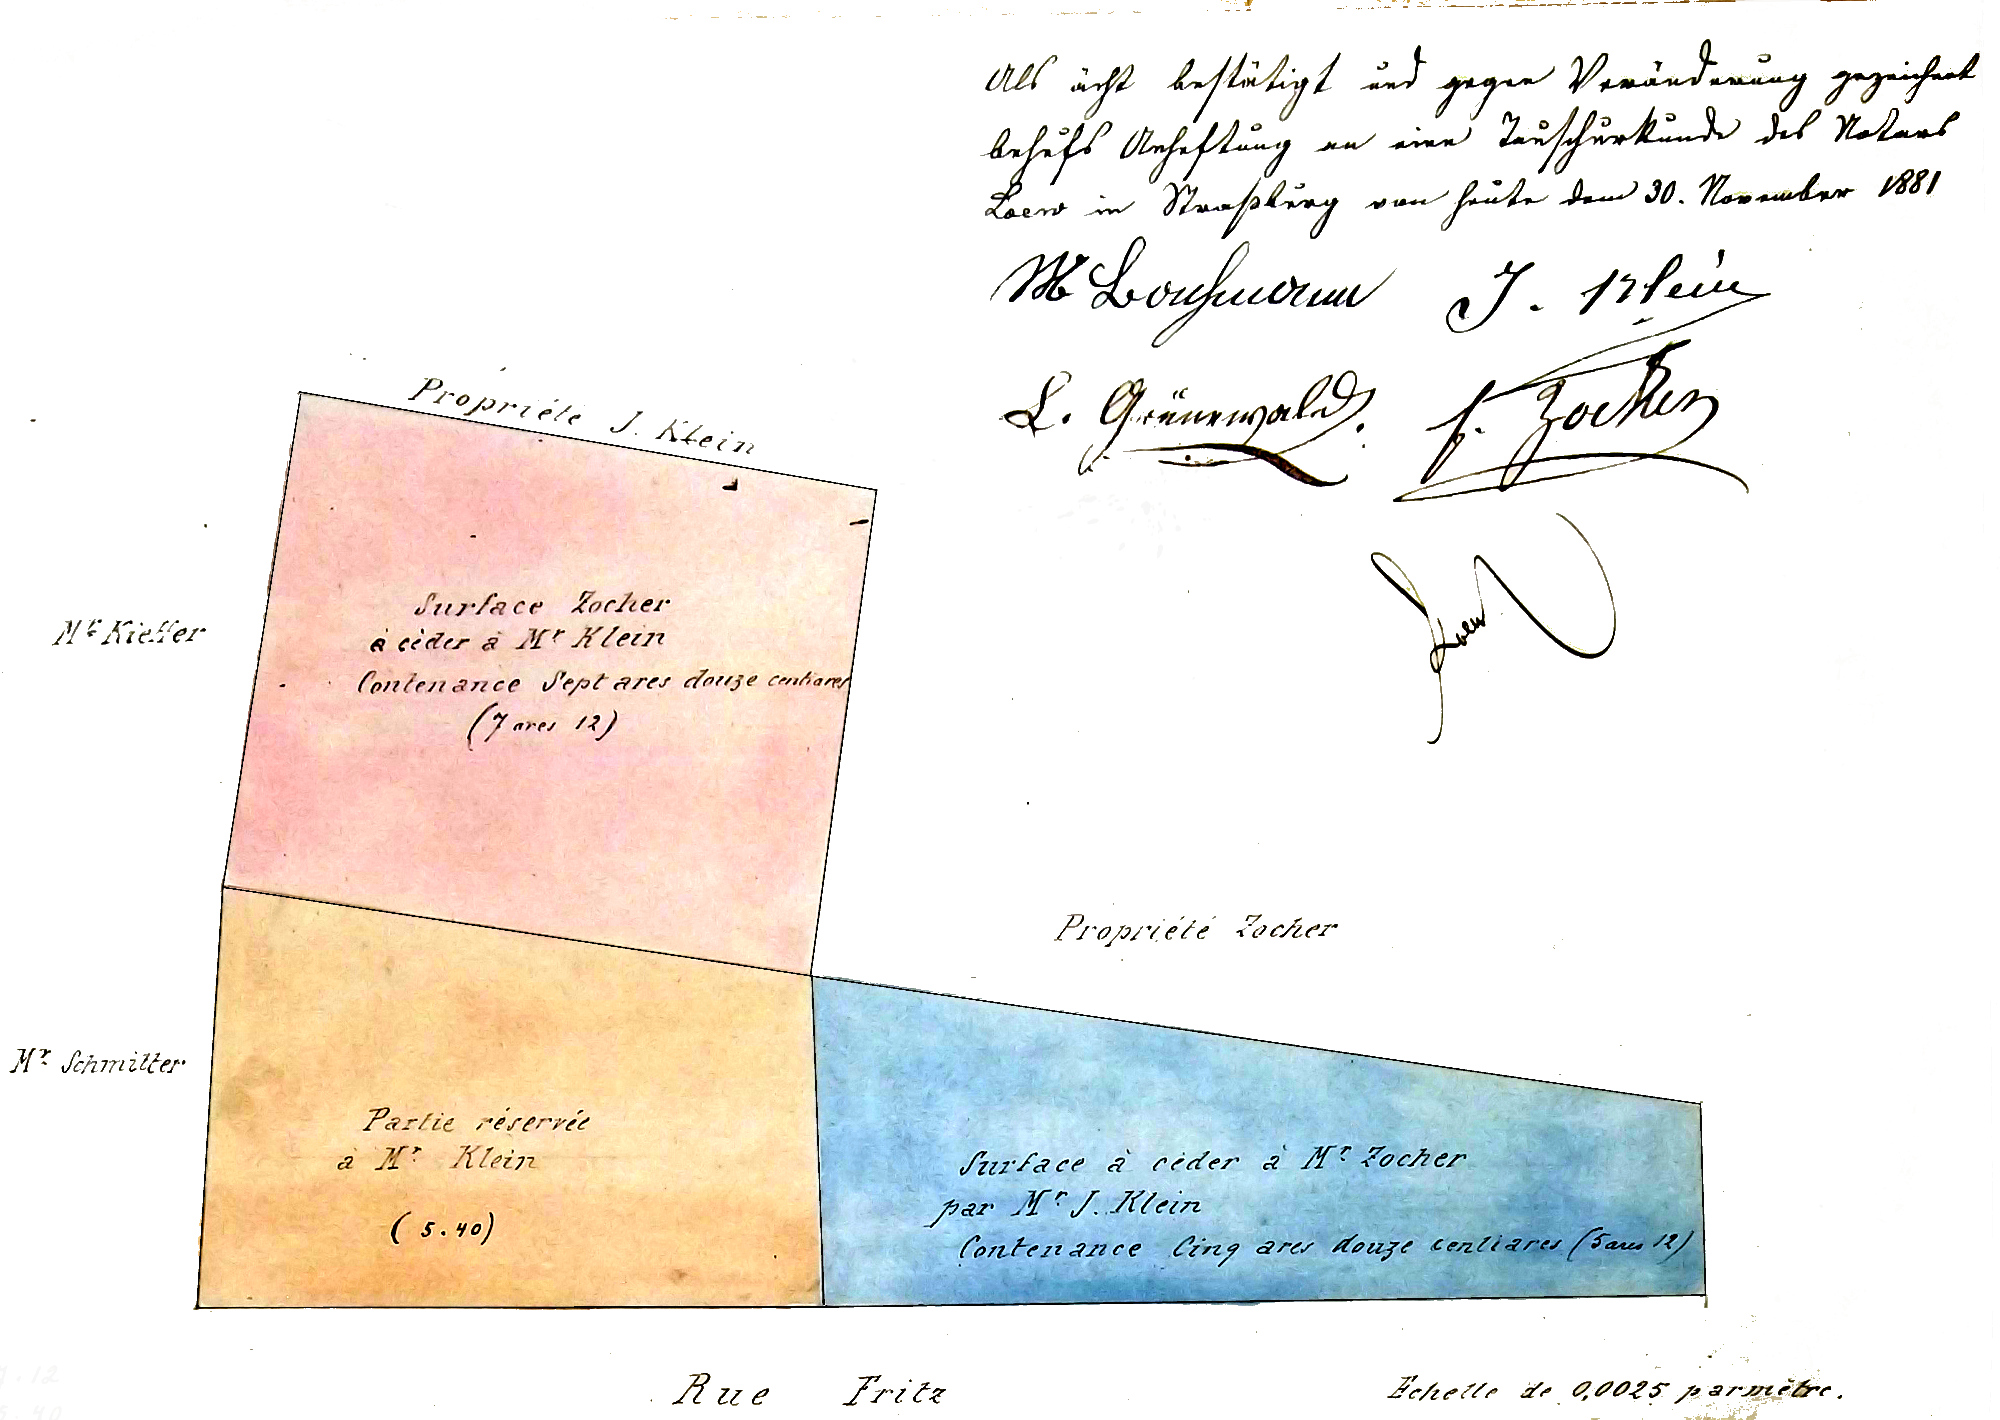 Als ächt bestätigt und gegen Veränderung gezeichnet
behufs Anheftung an eine Tauschurkunde des Notars
Loew in Straßburg von heute dem 30. November 1881
M Bachmann J. Klein
L. Grünewald. f. Zocher
Loew
Propriéte J. Klein
Mr Kieffer
Surface Zocher
à cèder à Mr Klein
Contenance Sept ares douze centiares
(7 ares 12)
Propriété Zocher
Mr Schmitter
Partie réservée
à Mr Klein
(5.40)
Surface à cèder à Mr Zocher
par Mr J. Klein
Contenance Cinq ares douze centiares (5 ares 12)
Rue Fritz
Echelle de 0,0025 par mètre.
7.12
5.40